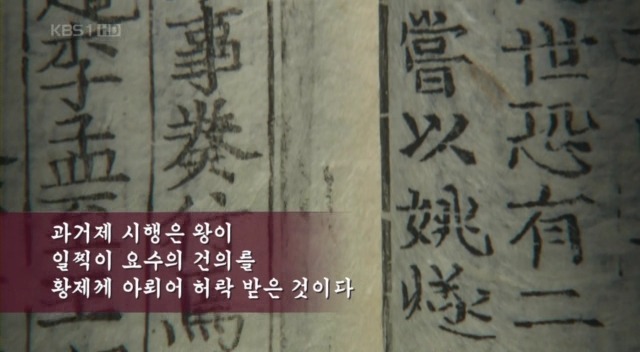 KBS1 HD
世恐有二
嘗以姚燧
事
李孟
과거제 시행은 왕이
일찍이 요수의 건의를
황제께 아뢰어 허락 받은 것이다